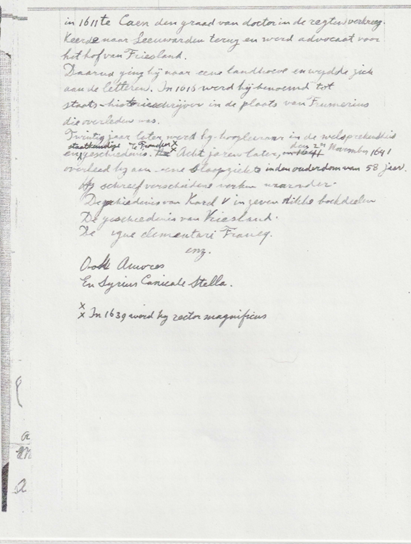 in 1611 te Caen den graad van doctor in de regten verkreeg.
Keerde naar Leeuwarden terug en word advocaat voor
het hof van Friesland.
Daarna ging hij naar eene landhoeve en wydde zich
aan de letteren. In 1616 werd hij benoemd tot
staats-historieschrijver in de plaats van Furmerius
die overleden was.
Twintig jaar later werd hij hoogleeraar in de welsprekendheid
staatkundige te Franeker x den 2n November 1641
en geschiedenis. Acht jaren later,
overleed hij aan eene slaapziekte in den ouderdom van 58 jaar.
Hij schreef verscheidene werken waaronder
De geschiedenis van Karel V in zeven dikke boekdeelen
De geschiedenis van Vriesland.
De clementarii Francq.
enz.
Ook Amores
En Syrius Canicale Stella.
x
x In 1639 word hij rector magnificus